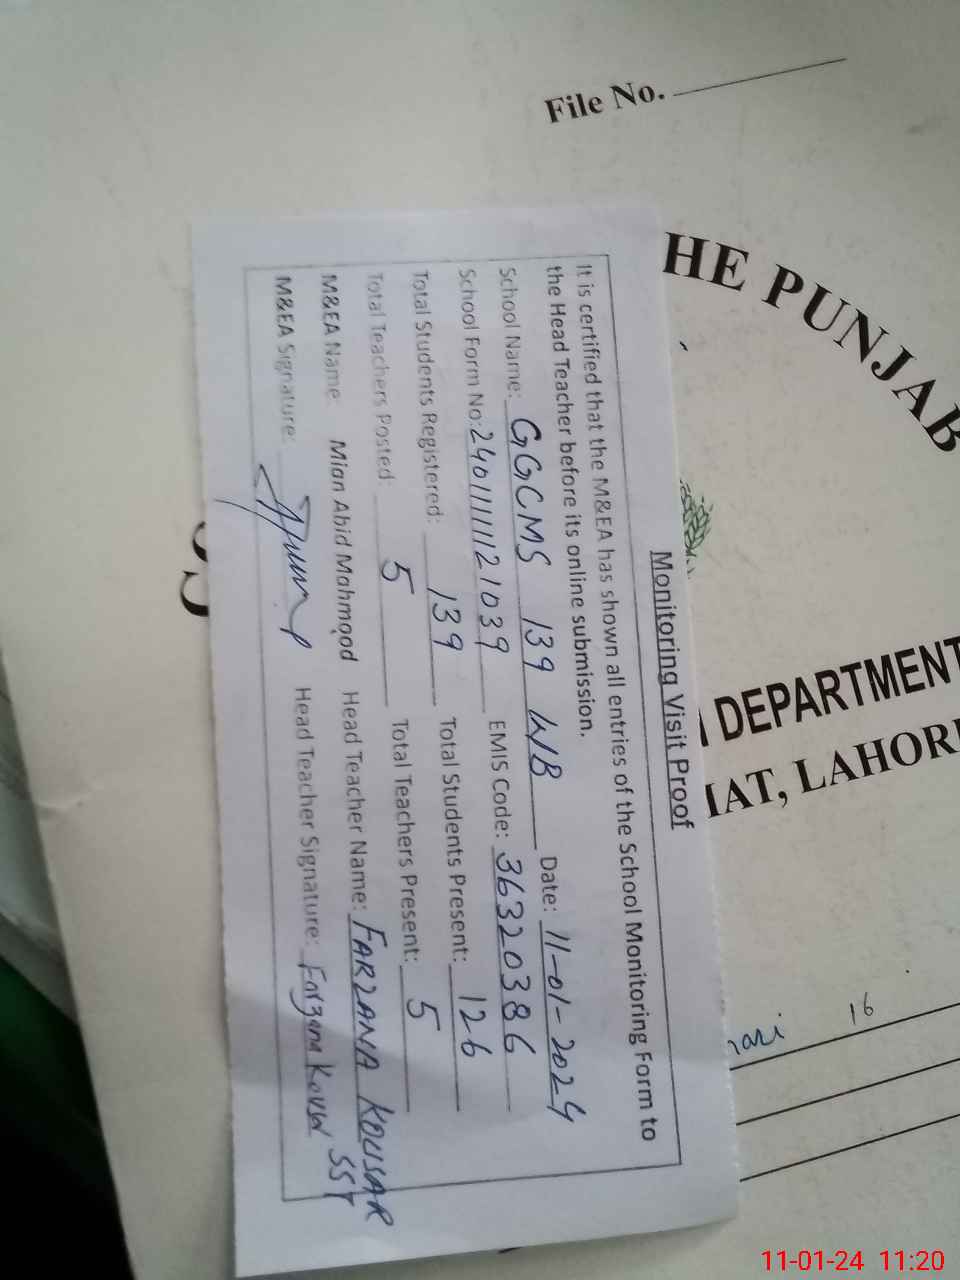 File No.
HE PUNJAB
DEPARTMENT
IAT, LAHORE
16
Monitoring Visit Proof
It is certified that the M&EA has shown all entries of the School Monitoring Form to
the Head Teacher before its online submission.
School Name: GGCMS 139 WB Date: 11-01-2024
School Form No: 2401111121039 EMIS Code: 36320386
Total Students Registered: 139 Total Students Present: 126
Total Teachers Posted: 5 Total Teachers Present: 5
M&EA Name: Mian Abid Mahmood Head Teacher Name: FARZANA KOUSAR
M&EA Signature: Head Teacher Signature: Farzana Kousar SST
11-01-24 11:20